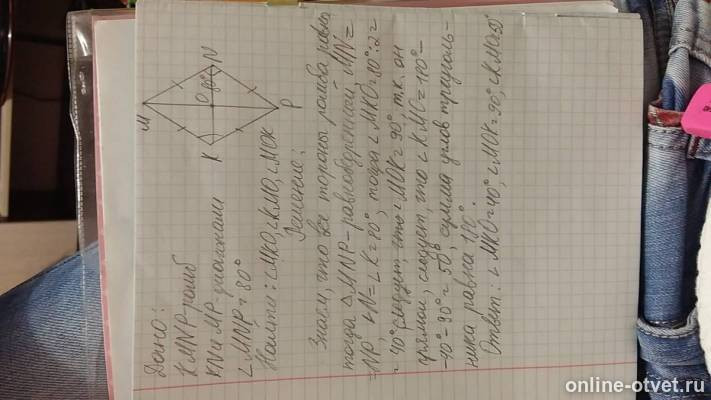 Дано:
KMNP-ромб
KN и MP-диагонали
∠MNP = 80°
Найти: ∠MKO, ∠KMO, ∠MOK
Решение:
Знаем, что все стороны ромба равны
тогда △MNP-равнобедренный, MN =
= NP, ∠N = ∠K = 80°, тогда ∠MKO = 80°:2 =
= 40°, следует, что ∠MOK = 90° т.к. он
прямой, следует, что ∠KMO = 180° -
- 40° - 90° = 50°, сумма углов треуголь-
ника равна 180°
Ответ: ∠MKO = 40°, ∠MOK = 90°, ∠KMO = 50°
M
K
O
80°
N
P
online-otvet.ru